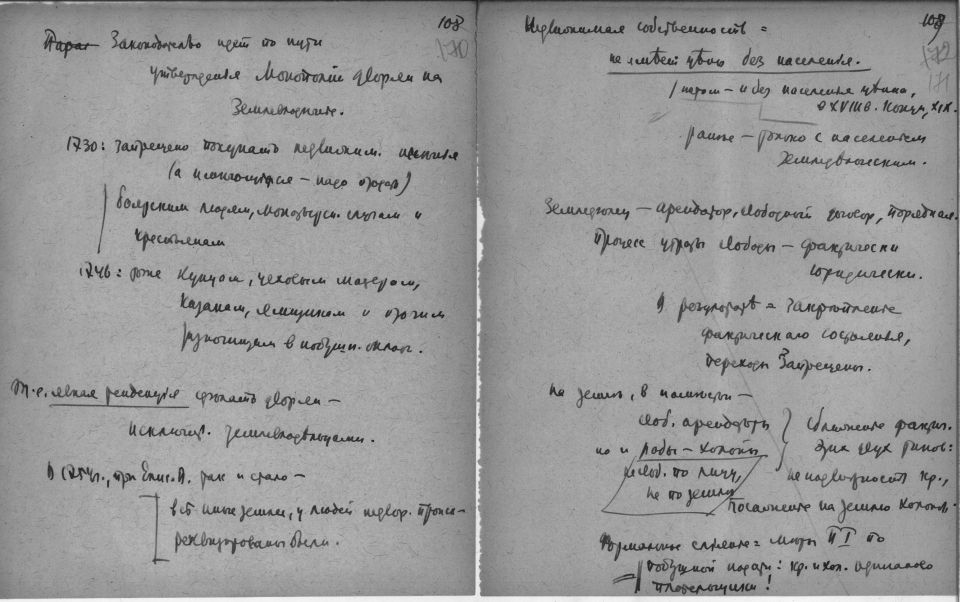 108
170
Законодательство идет по пути
утверждения монополии дворян на
землевладение.
1730: запрещено покупать недвижим. имения
(а имеющиеся – надо отдать)
боярским людям, монастырск. слугам и
крестьянам
1746: тоже купцам, цеховым мастерам,
казакам, ямщикам и прочим
разночинцам в подушн. окладе.
Т.е. явная тенденция сделать дворян –
исключит. землевладельцами.
В 1754г., при Елис. П. так и стало –
все иные земли, у людей недвор. проис-
реквизированы были.
108
172
171
Недвижимая собственность =
не имеет цены без населения.
/потом – и без населения ценна,
в XVIII в. конца, XIX.
раньше – только с населением
земледельческим.
Земледелец – арендатор, свободный договор, порядная.
Процесс утраты свободы – фактически
юридически.
В результате = закрепление
фактического состояния,
переходы запрещены.
На земле, в частности –
своб. арендаторы
но и рабы – холопы
несвоб. по лицу,
не по земле
сближение фактич.
этих двух типов:
неподвижность кр.,
посажение на землю холопов.
Формальное слияние = меры П I по
подушной подати: кр. и хол. одинаково
плательщики!